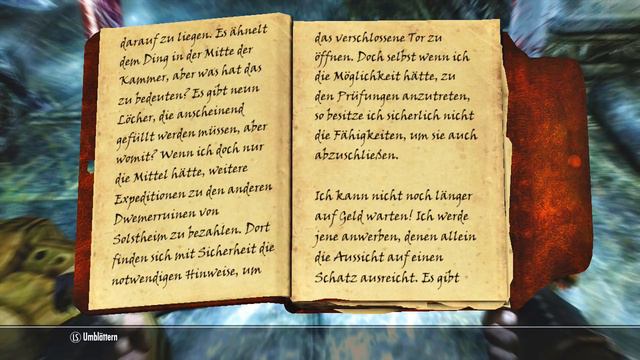 darauf zu liegen. Es ähnelt
dem Ding in der Mitte der
Kammer, aber was hat das
zu bedeuten? Es gibt neun
Löcher, die anscheinend
gefüllt werden müssen, aber
womit? Wenn ich doch nur
die Mittel hätte, weitere
Expeditionen zu den anderen
Dwemerruinen von
Solstheim zu bezahlen. Dort
finden sich mit Sicherheit die
notwendigen Hinweise, um
das verschlossene Tor zu
öffnen. Doch selbst wenn ich
die Möglichkeit hätte, zu
den Prüfungen anzutreten,
so besitze ich sicherlich nicht
die Fähigkeiten, um sie auch
abzuschließen.
Ich kann nicht noch länger
auf Geld warten! Ich werde
jene anwerben, denen allein
die Aussicht auf einen
Schatz ausreicht. Es gibt
LS Umblättern